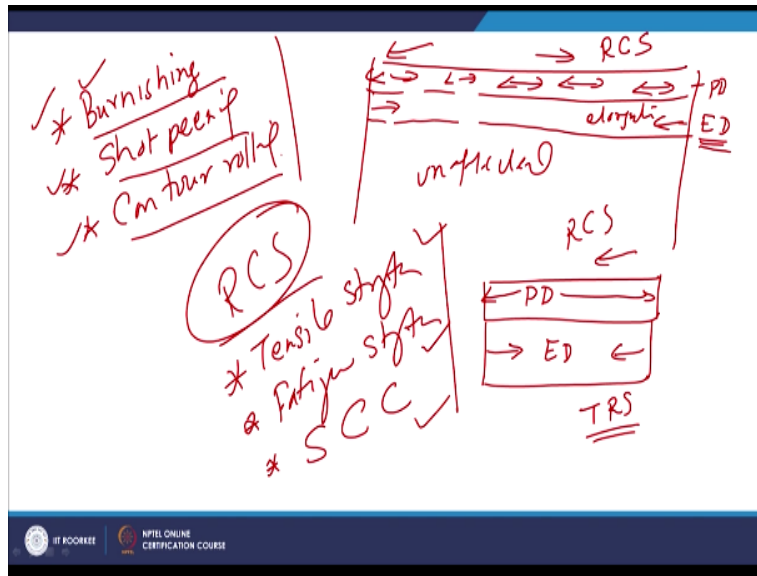 * Burnishing
* Shot peenig
* Contour rollig.
RCS
* Tensile strgth
* Fatigue strgth
* SCC
RCS
PD
elongati
ED
unaffected
RCS
PD
ED
TRS
IIT ROORKEE
NPTEL ONLINE
CERTIFICATION COURSE